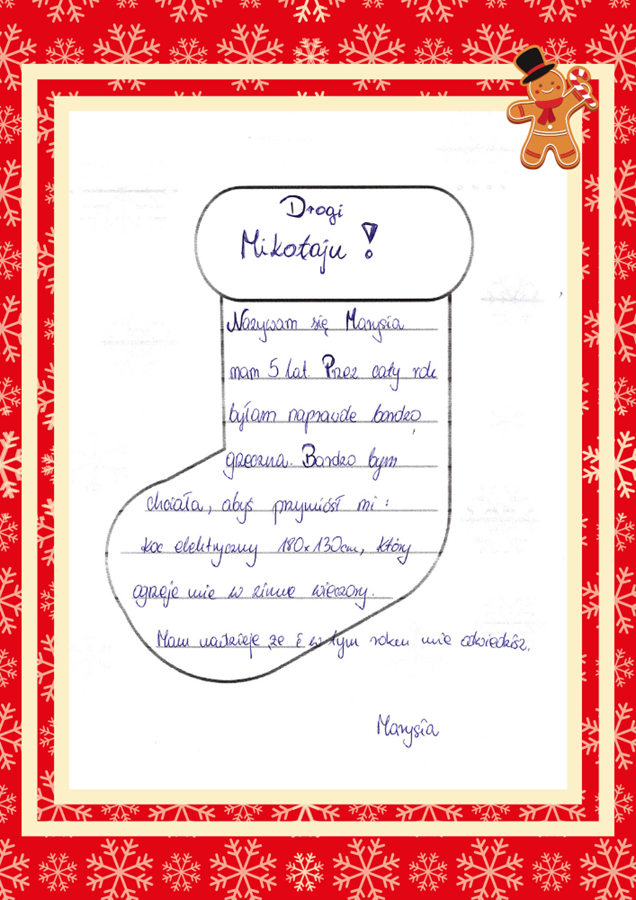 Drogi
Mikołaju!
Nazywam się Marysia
mam 5 lat Przez cały rok
byłam naprawdę bardzo
grzeczna. Bardzo bym
chciała, abyś przyniósł mi:
koc elektryczny 180x130cm, który
ogrzeje mie w zimne wieczory.
Mam nadzieje, że i w tym roku mie odwiedzisz.
Marysia